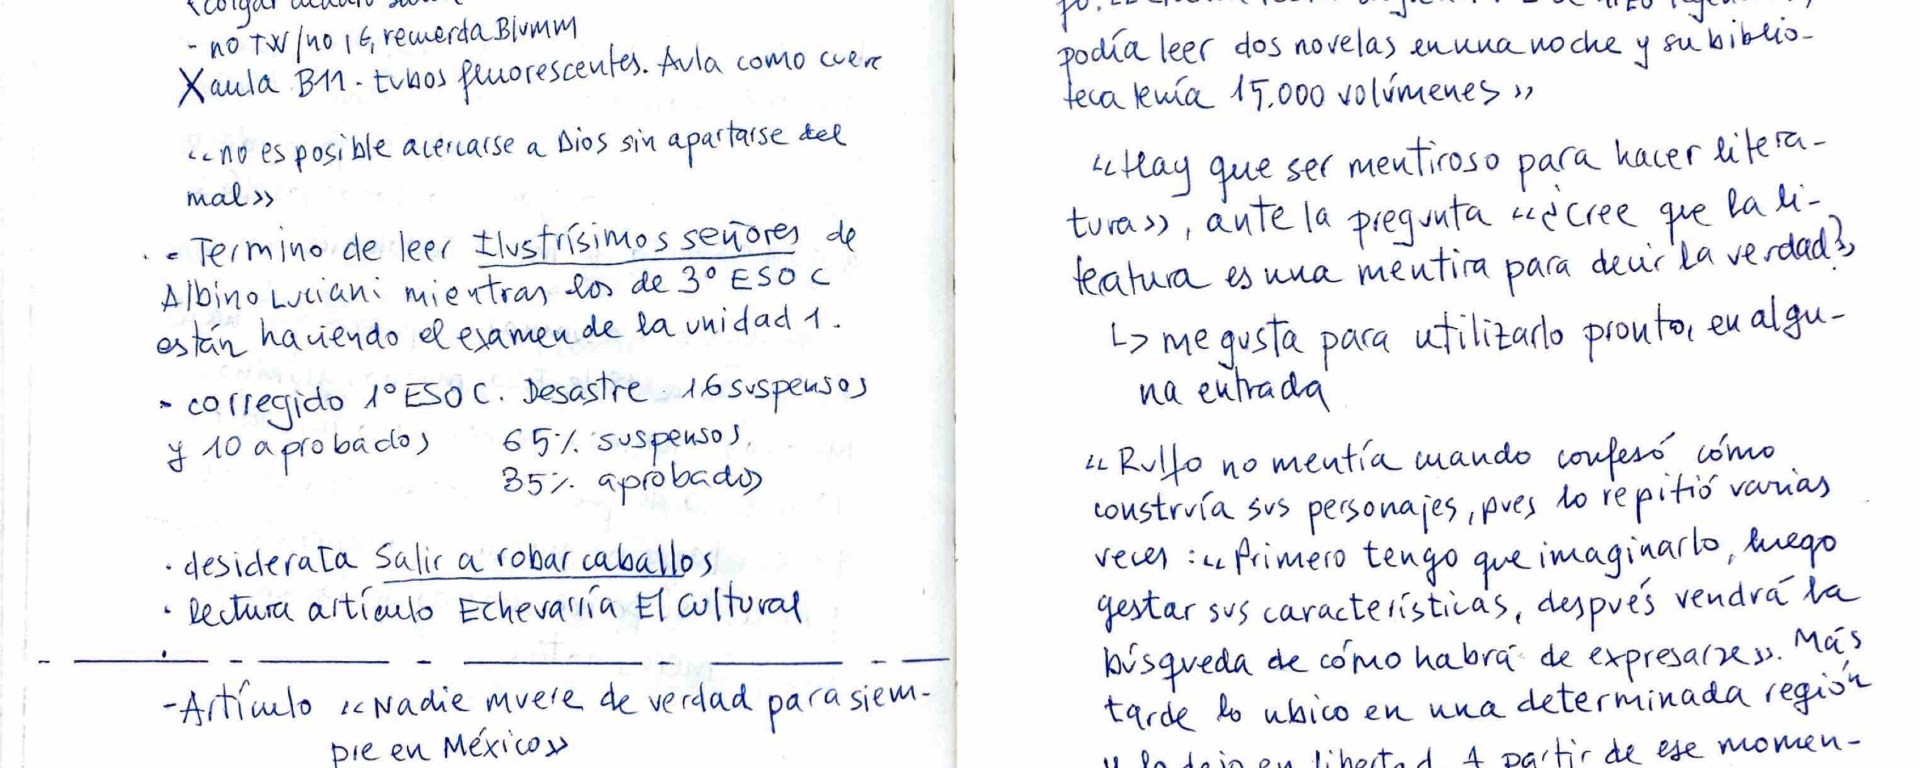 - no TW/no IG, recuerda Blumm
X aula B11 - tubos fluorescentes. Aula como
«no es posible acercarse a Dios sin apartarse del
mal»
- Termino de leer Ilustrísimos señores de
Albino Luciani mientras los de 3º ESO C
están haciendo el examen de la unidad 1.
- corregido 1º ESO C. Desastre. 16 suspensos
y 10 aprobados 65% suspensos.
35% aprobados
· desiderata Salir a robar caballos
· lectura artículo Echevarría El Cultural
- Artículo «Nadie muere de verdad para siem-
pre en México»
podía leer dos novelas en una noche y su biblio-
teca tenía 15.000 volúmenes»
«Hay que ser mentiroso para hacer litera-
tura», ante la pregunta «¿cree que la li-
teratura es una mentira para decir la verdad?»
↳ me gusta para utilizarlo pronto, en algu-
na entrada
«Rulfo no mentía cuando confesó cómo
construía sus personajes, pues lo repitió varias
veces: «Primero tengo que imaginarlo, luego
gestar sus características, después vendrá la
búsqueda de cómo habrá de expresarse». Más
tarde lo ubico en una determinada región
y lo dejo en libertad. A partir de ese momen-